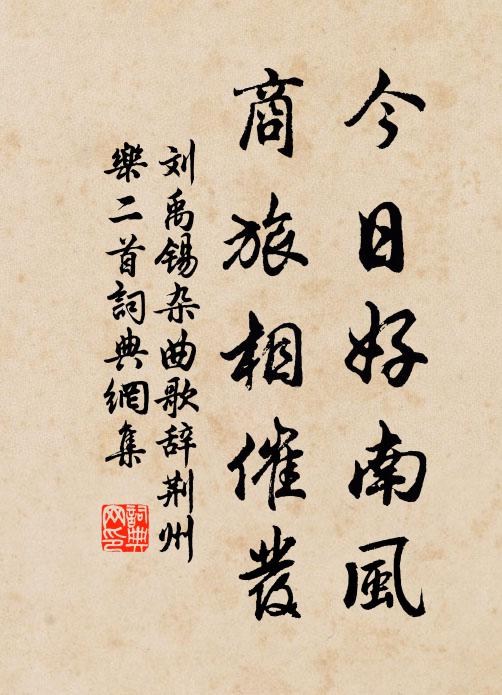 今日好南風
商旅相催發
刘禹锡杂曲歌辞荆州
樂二首詞典網集
詞典網印